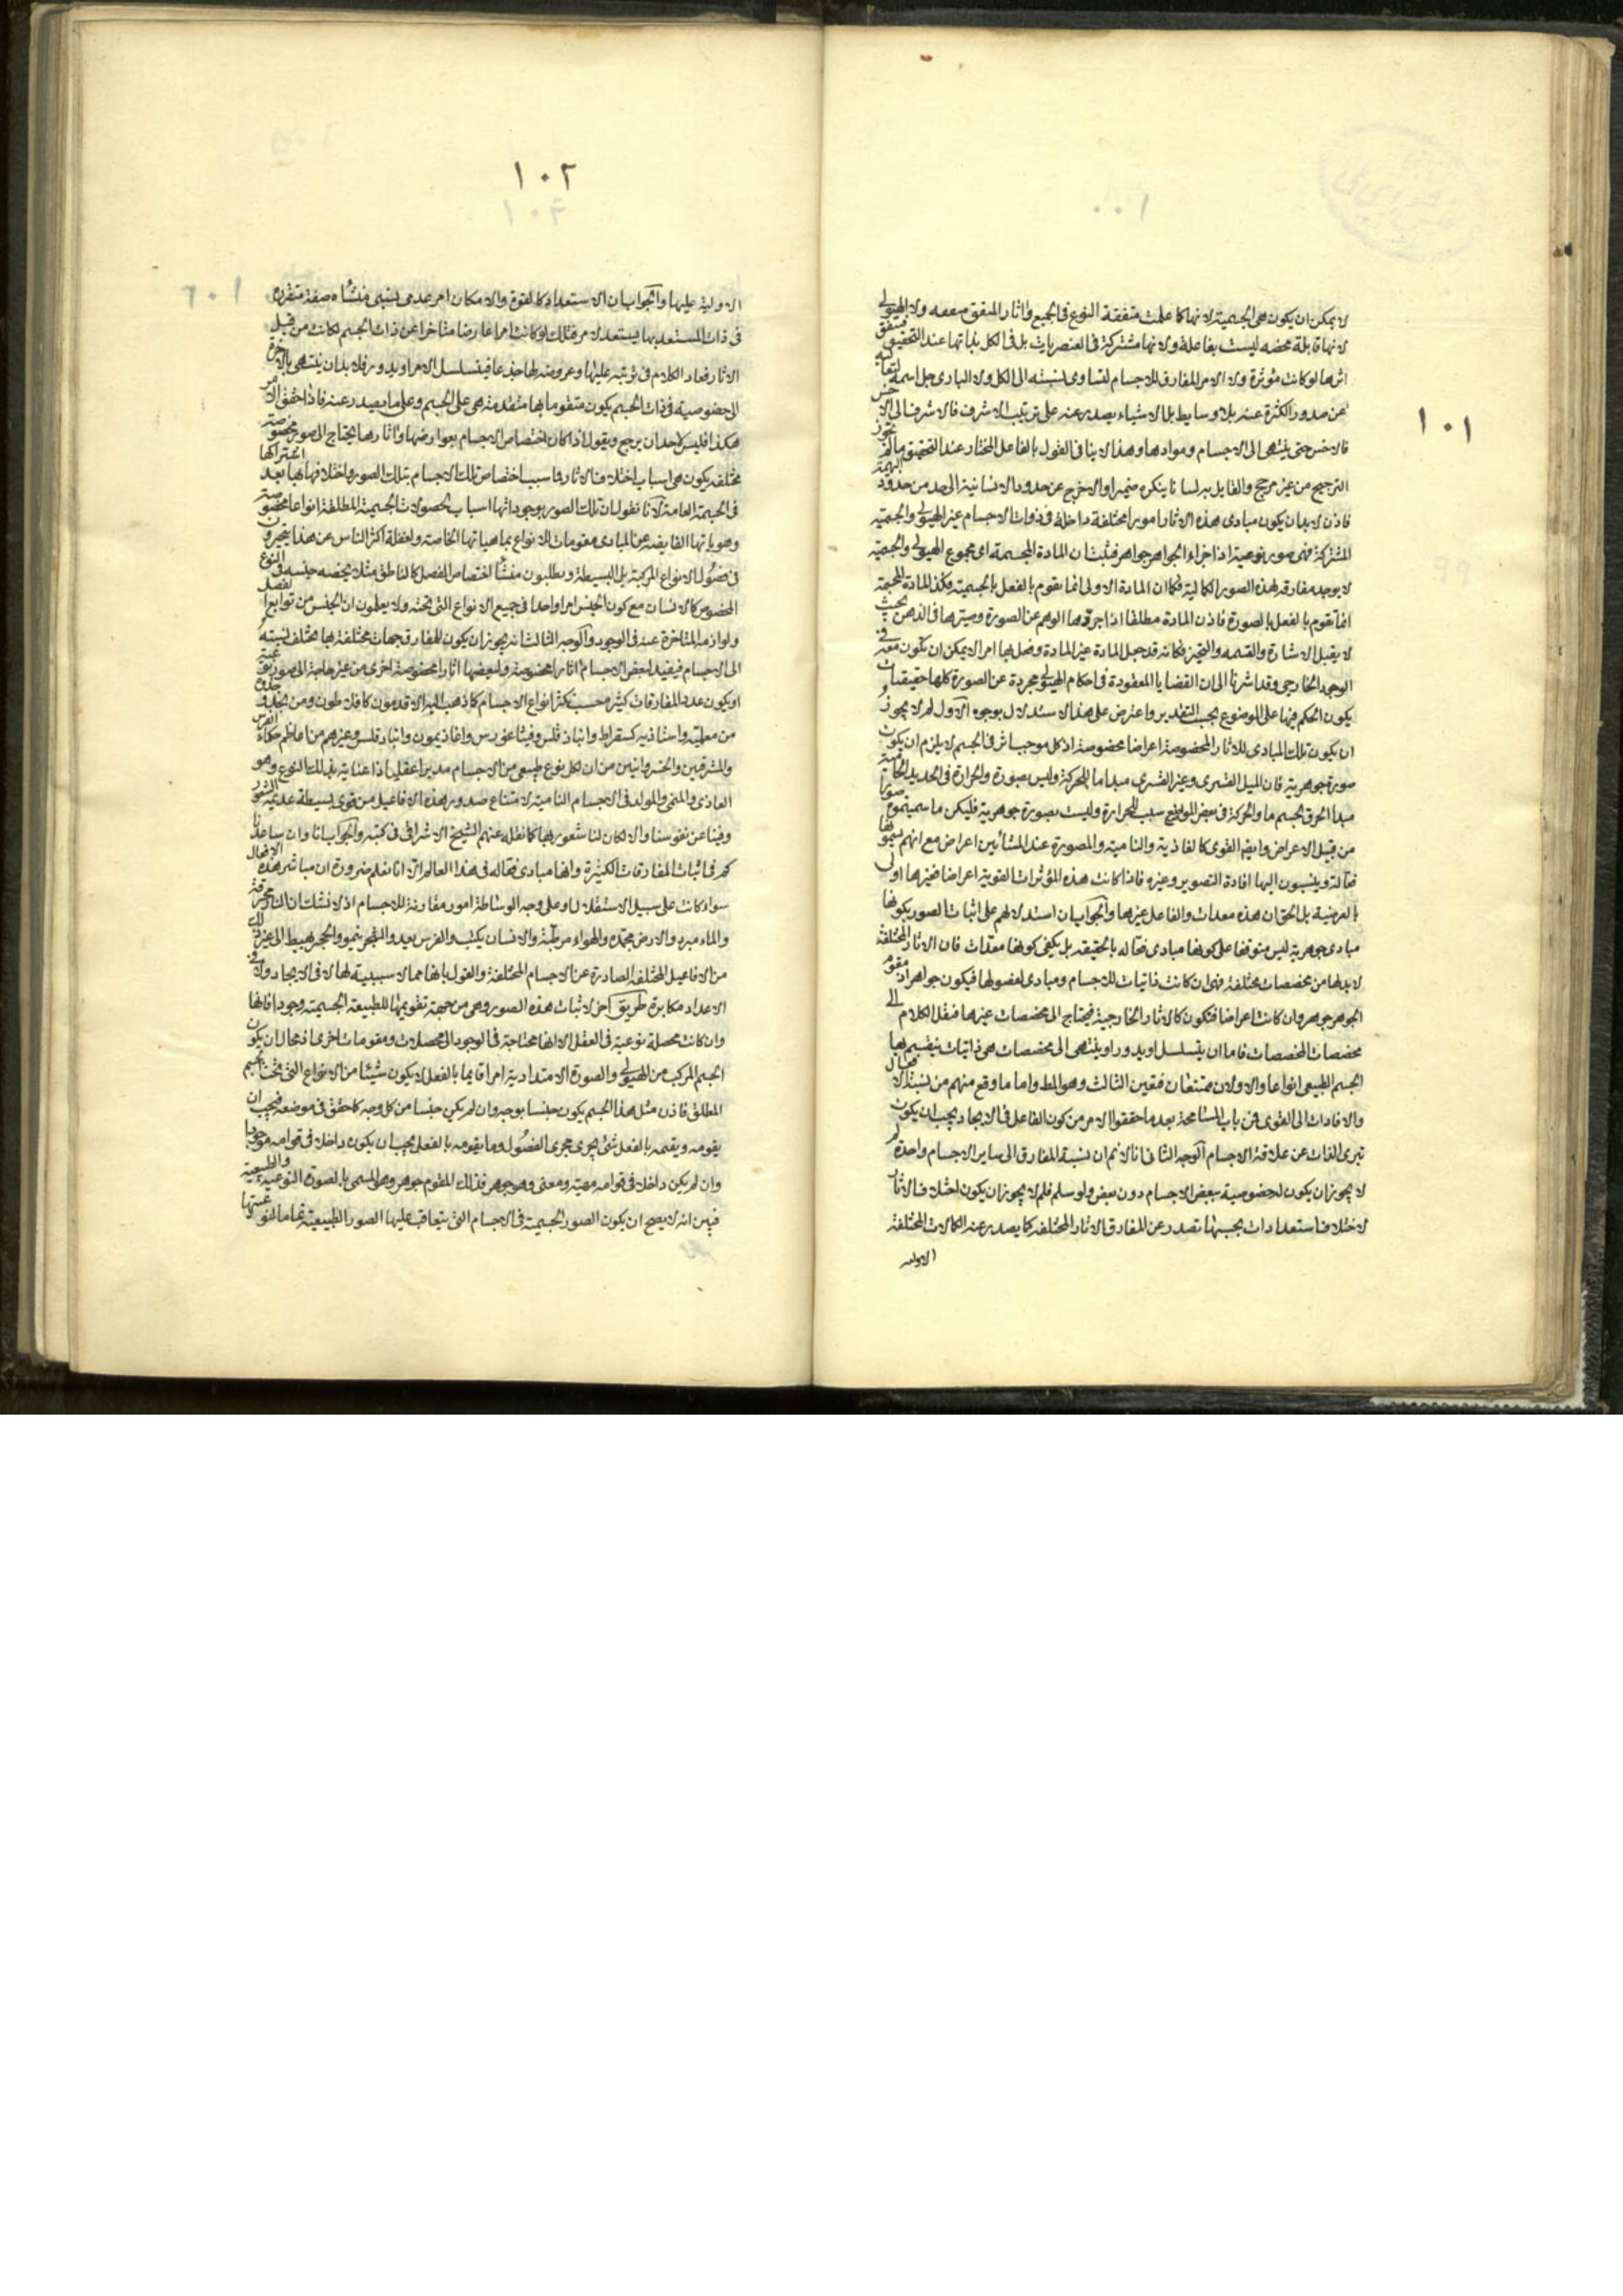 ١٠١
لا يمكن ان يكون هى الجسمية لانها كما علمت متفقة النوع فى الجميع واثار المتفق متفقه ولا الهيولى
لانها قابلة محضه ليست بفاعلة ولانها مشتركة فى العنصريات بل فى الكل بذاتها عند التحقيق فيتفق
اثرها لو كانت مؤثرة ولا الامر المفارق للاجسام لتساوى نسبته الى الكل ولا البارى جل اسمه لتعاليه
عن صدور الكثرة عنه بلا وسايط بل الاشياء يصدر عنه على ترتيب الاشرف فالاشرف الى الاخس
فالاخس حتى ينتهى الى الاجسام وموادها وهذا لا ينافى القول بالفاعل المختار عند التحقيق ما لم تجوز
الترجيح من غير مرجح والقايل به لسانا ينكره ضميرا والا خرج عن حدود الانسانية الى حد من حدود البهيمة
فاذن لابد ان يكون مبادى هذه الاثار امورا مختلفة داخلة فى ذوات الاجسام غير الهيولى والجسمية
المشتركة فهى صور نوعية اذ اجزاء الجواهر جواهر فثبت ان المادة المجسمة اى مجموع الهيولى والجسمية
لا يوجد مفارقة لهذه الصور الكمالية فكما ان المادة الاولى انما تقوم بالفعل بالجسمية فكذا المادة المجسمة
انما تقوم بالفعل بالصورة فاذن المادة مطلقا اذا جردها الوهم عن الصورة وصيرها فى الذهن بحيث
لا يقبل الاشارة والقسمه والتحيز فكانه قد جعل المادة غير المادة وفعل بها امرا لا يمكن ان تكون معه فى
الوجود الخارجى وقد اشرنا الى ان القضايا المعقودة فى احكام الهيولى مجردة عن الصورة كلها حقيقيات
يكون الحكم فيها على الموضوع بحسب التقدير واعترض على هذا الاستدلال بوجوه الاول لم لا يجوز
ان يكون تلك المبادى للاثار المخصوصة اعراضا مخصوصة اذ كل موجب اثر فى الجسم لا يلزم ان يكون
صورة جوهرية فان الميل القسرى وغير القسرى مبدا ما للحركة وليس بصورة والحرارة فى الحديد الحامية
مبدا الحرق لجسم ما والحركة فى بعض المواضع سبب للحرارة وليست بصورة جوهرية فليكن ما سميتموه صورا
من قبيل الاعراض وايضا القوى كالغاذية والنامية والمصورة عند المشائين اعراض مع انهم يسمونها
فعالة وينسبون اليها افادة التصوير وغيره فاذا كانت هذه المؤثرات القوية اعراضا فغيرها اولى
بالعرضية بل الحق ان هذه معدات والفاعل غيرها والجواب ان استدلالهم على اثبات الصور بكونها
مبادى جوهرية ليس متوقفا على كونها مبادى فعاله بالحقيقه بل يكفى كونها معدات فان الاثار المختلفة
لابد لها من مخصصات مختلفة فهى ان كانت ذاتيات للاجسام ومبادى لفصولها فيكون جواهر اذ مقوم
الجوهر جوهر وان كانت اعراضا فتكون كالاثار الخارجية فيحتاج الى مخصصات غيرها فنقل الكلام الى
مخصصات المخصصات فاما ان يتسلسل او يدور او ينتهى الى مخصصات هى ذاتيات ينقسم بها
الجسم الطبيعى انواعا والاولان ممتنعان فتعين الثالث وهو المط واما ما وقع منهم من نسبة الافعال
والافادات الى القوى فمن باب المسامحة بعد ما حققوا الامر من كون الفاعل فى الايجاد يجب ان يكون
تبرى الذات عن علاقة الاجسام الوجه الثانى انا لا نم ان نسبة المفارق الى ساير الاجسام واحدة لم
لا يجوز ان يكون له خصوصية ببعض الاجسام دون بعض ولو سلم فلم لا يجوز ان يكون اختلاف الاثار
لاختلاف استعدادات بحسبها تصدر عن المفارق الاثار المختلفه كما يصدر عنه الكمالات المختلفة
الاوليه
١٠٢
الاولية عليها والجواب ان الاستعداد كالقوة والامكان امر عدمى نسبى منشاه صفة متقرره
فى ذات المستعد بها يستعد لامر فتلك لو كانت امرا عارضا متاخرا عن ذات الجسم لكانت من قبيل
الاثار فعاد الكلام فى ترتبه عليها وعروضه لها جذعا فيتسلسل الامر او يدور فلابد ان ينتهى بالاخرة
الى خصوصية فى ذات الجسم يكون متقوما بها متقدمة هى على الجسم وعلى ما يصدر عنه فاذا حقق الامر
هكذا فليس لاحد ان يرجع ويقول اذا كان اختصاص الاجسام بعوارضها واثارها يحتاج الى صور مخصوصة
مختلفه يكون هى اسباب اختلاف الاثار فما سبب اختصاص تلك الاجسام بتلك الصور واختلافها بها بعد اشتراكها
فى الجسمية العامة لانا نقول ان تلك الصور بوجوداتها اسباب لحصولات الجسمية المطلقة انواعا مخصوصة
وهوياتها الفايضه عن المبادى مقومات للانواع بماهياتها الخاصة ولغفلة اكثر الناس عن هذا يتحيرون
فى فصول الانواع المركبة بل البسيطة ويطلبون منشأ اختصاص الفصل كالناطق مثلا بحصه جنسه والنوع
المخصوص كالانسان مع كون الجنس امرا واحدا فى جميع الانواع التى تحته ولا يعلمون ان الجنس من توابع الفصل
ولوازمه المتاخرة عنه فى الوجود والوجه الثالث انه يجوز ان يكون للمفارق جهات مختلفة بها يختلف نسبته
الى الاجسام فيفيد لبعض الاجسام اثارا مخصوصة ولبعضها اثارا مخصوصة اخرى من غير حاجة الى صور نوعية
او يكون عدد المفارقات كثيرة حسب تكثر انواع الاجسام كما ذهب اليه الاقدمون كافلاطون ومن يحذو حذوه
من معلميه واستاذيه كسقراط وانباذقلس وفيثاغورس واغاذيمون وانباذقلس وغيرهم من اعاظم حكماء الفرس
والمشرقيين والخسروانيين من ان لكل نوع طبيعى من الاجسام مدبرا عقليا ذا عناية بذلك النوع وهو
الغاذى والمنمى والمولد فى الاجسام النامية لامتناع صدور هذه الافاعيل من قوى بسيطة عديمة الشعور
وفينا عن نفوسنا والا لكان لنا شعور بها كما نقله عنهم الشيخ الاشراقى فى كتبه والجواب انا وان ساعدنا
كم فى اثبات المفارقات الكثيرة وانها مبادى فعاله فى هذا العالم الا انا نعلم ضرورة ان مباشر هذه الافعال
سواء كانت على سبيل الاستقلال او على وجه الوساطة امور مقارنة للاجسام اذ لا نشك ان النار محرقة
والماء مبرد والارض مجمده والهواء مرطبة والانسان يكتب والفرس يعدو والشجر ينمو والحجر يهبط الى غير ذلك
من الافاعيل المختلفه الصادرة عن الاجسام المختلفة والقول بانها مما لا سببية لها لا فى الايجاد ولا فى
الاعداد مكابرة طريق اخر لاثبات هذه الصور وهى من جهة تقويمها للطبيعة الجسمية وجودا فانها
وان كانت محصلة نوعية فى العقل الا انها محتاجة فى الوجود الى محصلات ومقومات اخرى اذ محال ان يكون
الجسم المركب من الهيولى والصورة الامتدادية امرا قايما بالفعل لا يكون شيئا من الانواع التى تحت الجسم
المطلق فاذن مثل هذا الجسم يكون جنسا بوجه وان لم يكن جنسا من كل وجه كما حقق فى موضعه فيجب ان
يقومه ويقسمه بالفعل شئ يجرى مجرى الفصول وما يقومه بالفعل يجب ان يكون داخلا فى قوامه موجودا
وان لم يكن داخلا فى قوامه مهية ومعنى وهو جوهر فذلك المقوم جوهر وهو المسمى بالصورة النوعية والطبيعية
فتبين انه لا يصح ان يكون الصور الجسمية فى الاجسام التى يتعاقب عليها الصور الطبيعية تماما لنوعيتها